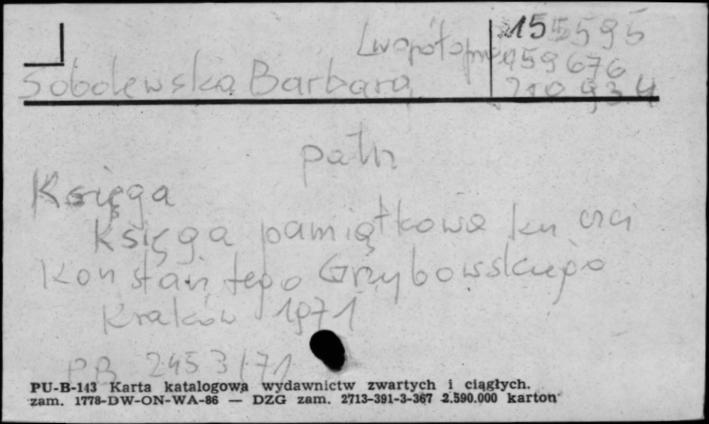 155595
459676
210934
Sobolewska Barbara
patrz
Księga
Księga pamiątkowa ku czci
Konstantego Grzybowskiego
Kraków 1971
PB 2453/71
PU-B-113 Karta katalogowa wydawnictw zwartych i ciągłych.
zam. 1778-DW-ON-WA-86 — DZG zam. 2713-391-3-367 2.590.000 karton